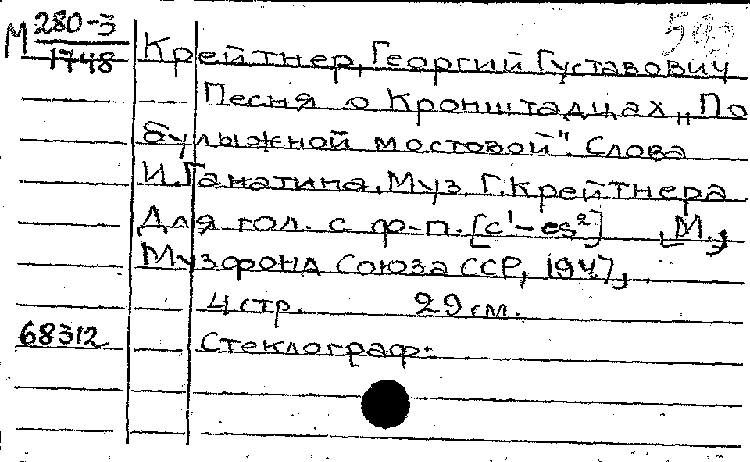 М 280-3
1748
Крейтнер, Георгий Густавович
Песня о Кронштадцах „По
булыжной мостовой". Слова
И. Ганатина. Муз Г. Крейтнера
Для гол. с ф-п. [c'-es²] [М.,
Музфонд Союза ССР, 1947,
4 стр. 29 см.
68312 Стеклограф.